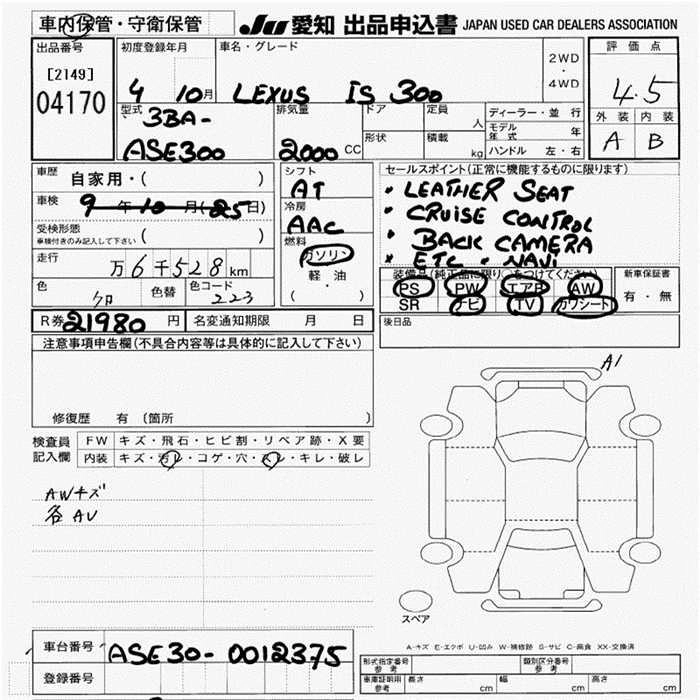 車内保管・守衛保管 JU 愛知 出品申込書 JAPAN USED CAR DEALERS ASSOCIATION
出品番号 初度登録年月 車名・グレード 2WD ・ 4WD 評価点
[2149]
04170 4 10月 LEXUS IS 300 4.5
型式 3BA- ASE300 排気量 2000 CC ドア 定員 人 ディーラー・並行
形状 積載 kg モデル年式 年
ハンドル 左・右
外装 内装
A B
車歴 自家用・( )
車検 9年10月(25日)
受検形態 車検付きのみ記入して下さい ( )
走行 万6千528km
色 クロ 色替 色コード 223
シフト AT
冷房 AAC
燃料 ガソリン
軽油
( ・ )
セールスポイント(正常に機能するものに限ります)
・LEATHER SEAT
・CRUISE CONTROL
・BACK CAMERA
・ETC・NAVI
装備品(純正品に限り○をつけてください) 新車保証書
PS PW エアB AW 有・無
SR ナビ TV カワシート
後日品
R券 21980 円 名変通知期限 月 日
注意事項申告欄(不具合内容等は具体的に記入して下さい)
修復歴 有 (箇所
検査員記入欄 FW キズ・飛石・ヒビ割・リペア跡・X要
内装 キズ・汚レ・コゲ・穴・スレ・キレ・破レ
AWキズ
各AU
A1
スペア
A-キズ E-エクボ U-凹み W-補修跡 S-サビ C-腐食 XX-交換済
車台番号 ASE30-0012375
登録番号
形式指定番号 参考 類別区分番号 参考
車庫証明用 参考 長さ cm 幅 cm 高さ cm